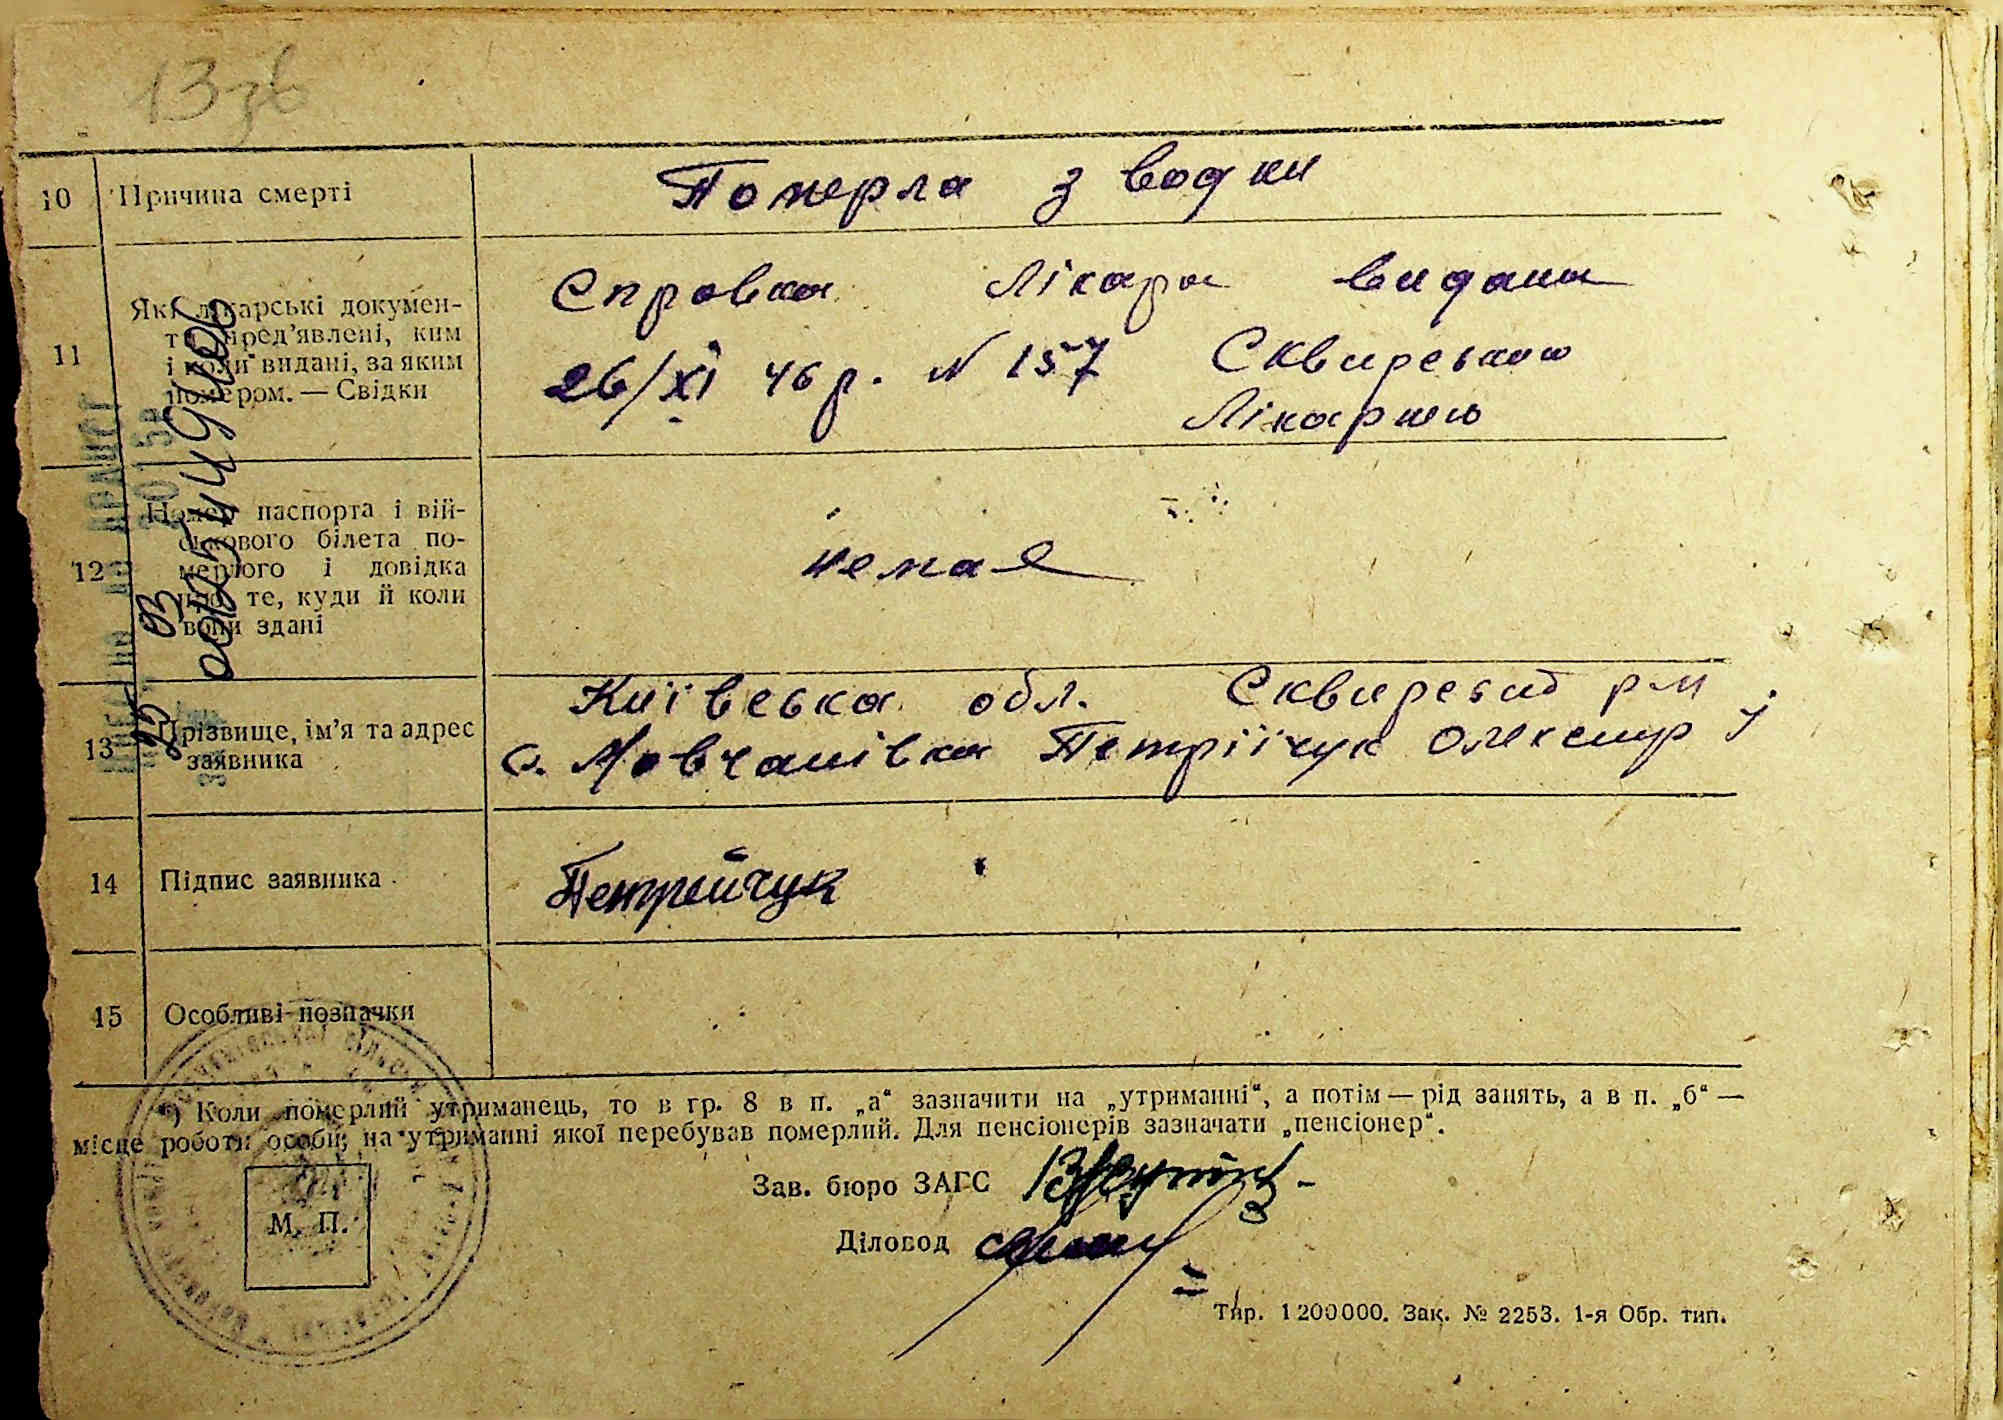 13 зв
10 Причина смерті
Померла з водки
11 Які лікарські докумен-
ти пред'явлені, ким
і коли видані, за яким
номером. — Свідки
Справка Лікара видана
26/XI 46 р. N 157 Сквирською
Лікарнею
12 Номер паспорта і вій-
ськового білета по-
мерлого і довідка
про те, куди й коли
вони здані
немає
13 Прізвище, ім'я та адрес
заявника
Київська обл. Сквирський р-н
с. Мовчанівка Петрійчук Олександр
14 Підпис заявника
Петрейчук
15 Особливі позначки
*) Коли померлий утриманець, то в гр. 8 в п. „а“ зазначити на „утриманні“, а потім — рід занять, а в п. „б“ —
місце роботи особи, на утриманні якої перебував померлий. Для пенсіонерів зазначати „пенсіонер“.
М. П.
Зав. бюро ЗАГС
Діловод
Тир. 1200000. Зак. № 2253. 1-я Обр. тип.